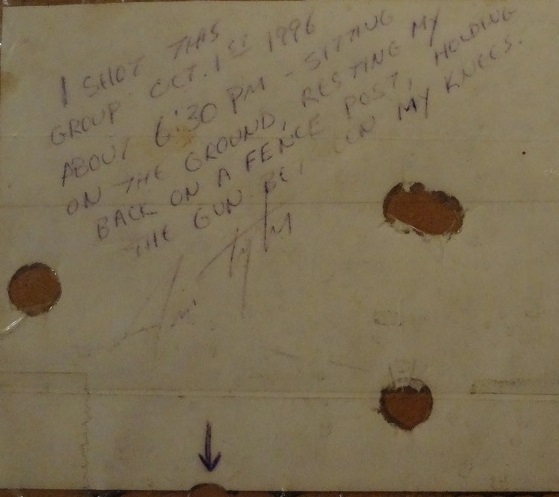 I SHOT THIS
GROUP OCT. 1ST 1996
ABOUT 6:30 PM - SITTING
ON THE GROUND, RESTING MY
BACK ON A FENCE POST, HOLDING
THE GUN BETWEEN MY KNEES.